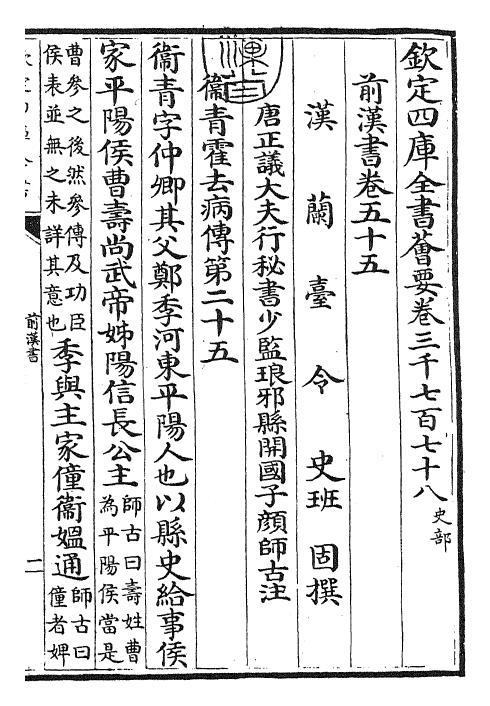 欽定四庫全書薈要卷三千七百七十八史部
前漢書卷五十五
漢蘭臺令史班固撰
唐正議大夫行秘書少監琅邪縣開國子顔師古注
衞青霍去病傳第二十五
衞青字仲卿其父鄭季河東平陽人也以縣吏給事侯
家平陽侯曹壽尚武帝姊陽信長公主師古曰壽姓曹為平陽侯當是
曹參之後然參傳及功臣侯表並無之未詳其意也季與主家僮衞媼通師古曰僮者婢
前漢書